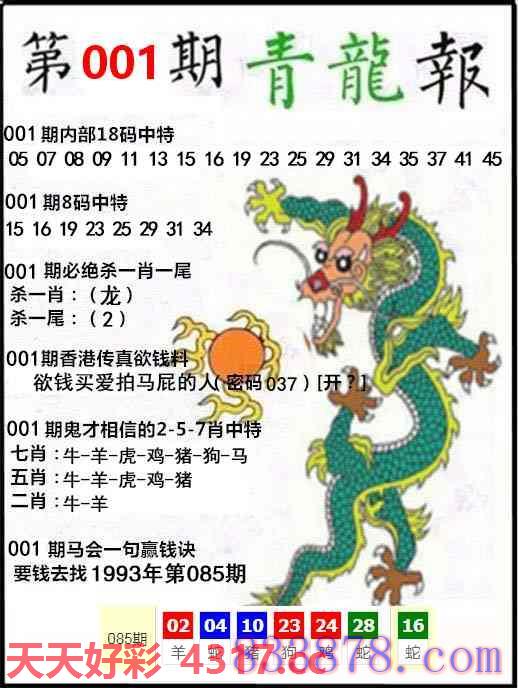 第001期青龍報
001期内部18码中特
05 07 08 09 11 13 15 16 19 23 25 29 31 34 35 37 41 45
001期8码中特
15 16 19 23 25 29 31 34
001期必绝杀一肖一尾
杀一肖:(龙)
杀一尾:(2)
001期香港传真欲钱料
欲钱买爱拍马屁的人(密码037)[开?]
001期鬼才相信的2-5-7肖中特
七肖:牛-羊-虎-鸡-猪-狗-马
五肖:牛-羊-虎-鸡-猪
二肖:牛-羊
001期马会一句赢钱诀
要钱去找1993年第085期
085期 02 04 10 23 24 28 16
羊 蛇 猪 狗 鸡 蛇 蛇
天天好彩 4317.cc
838878.com